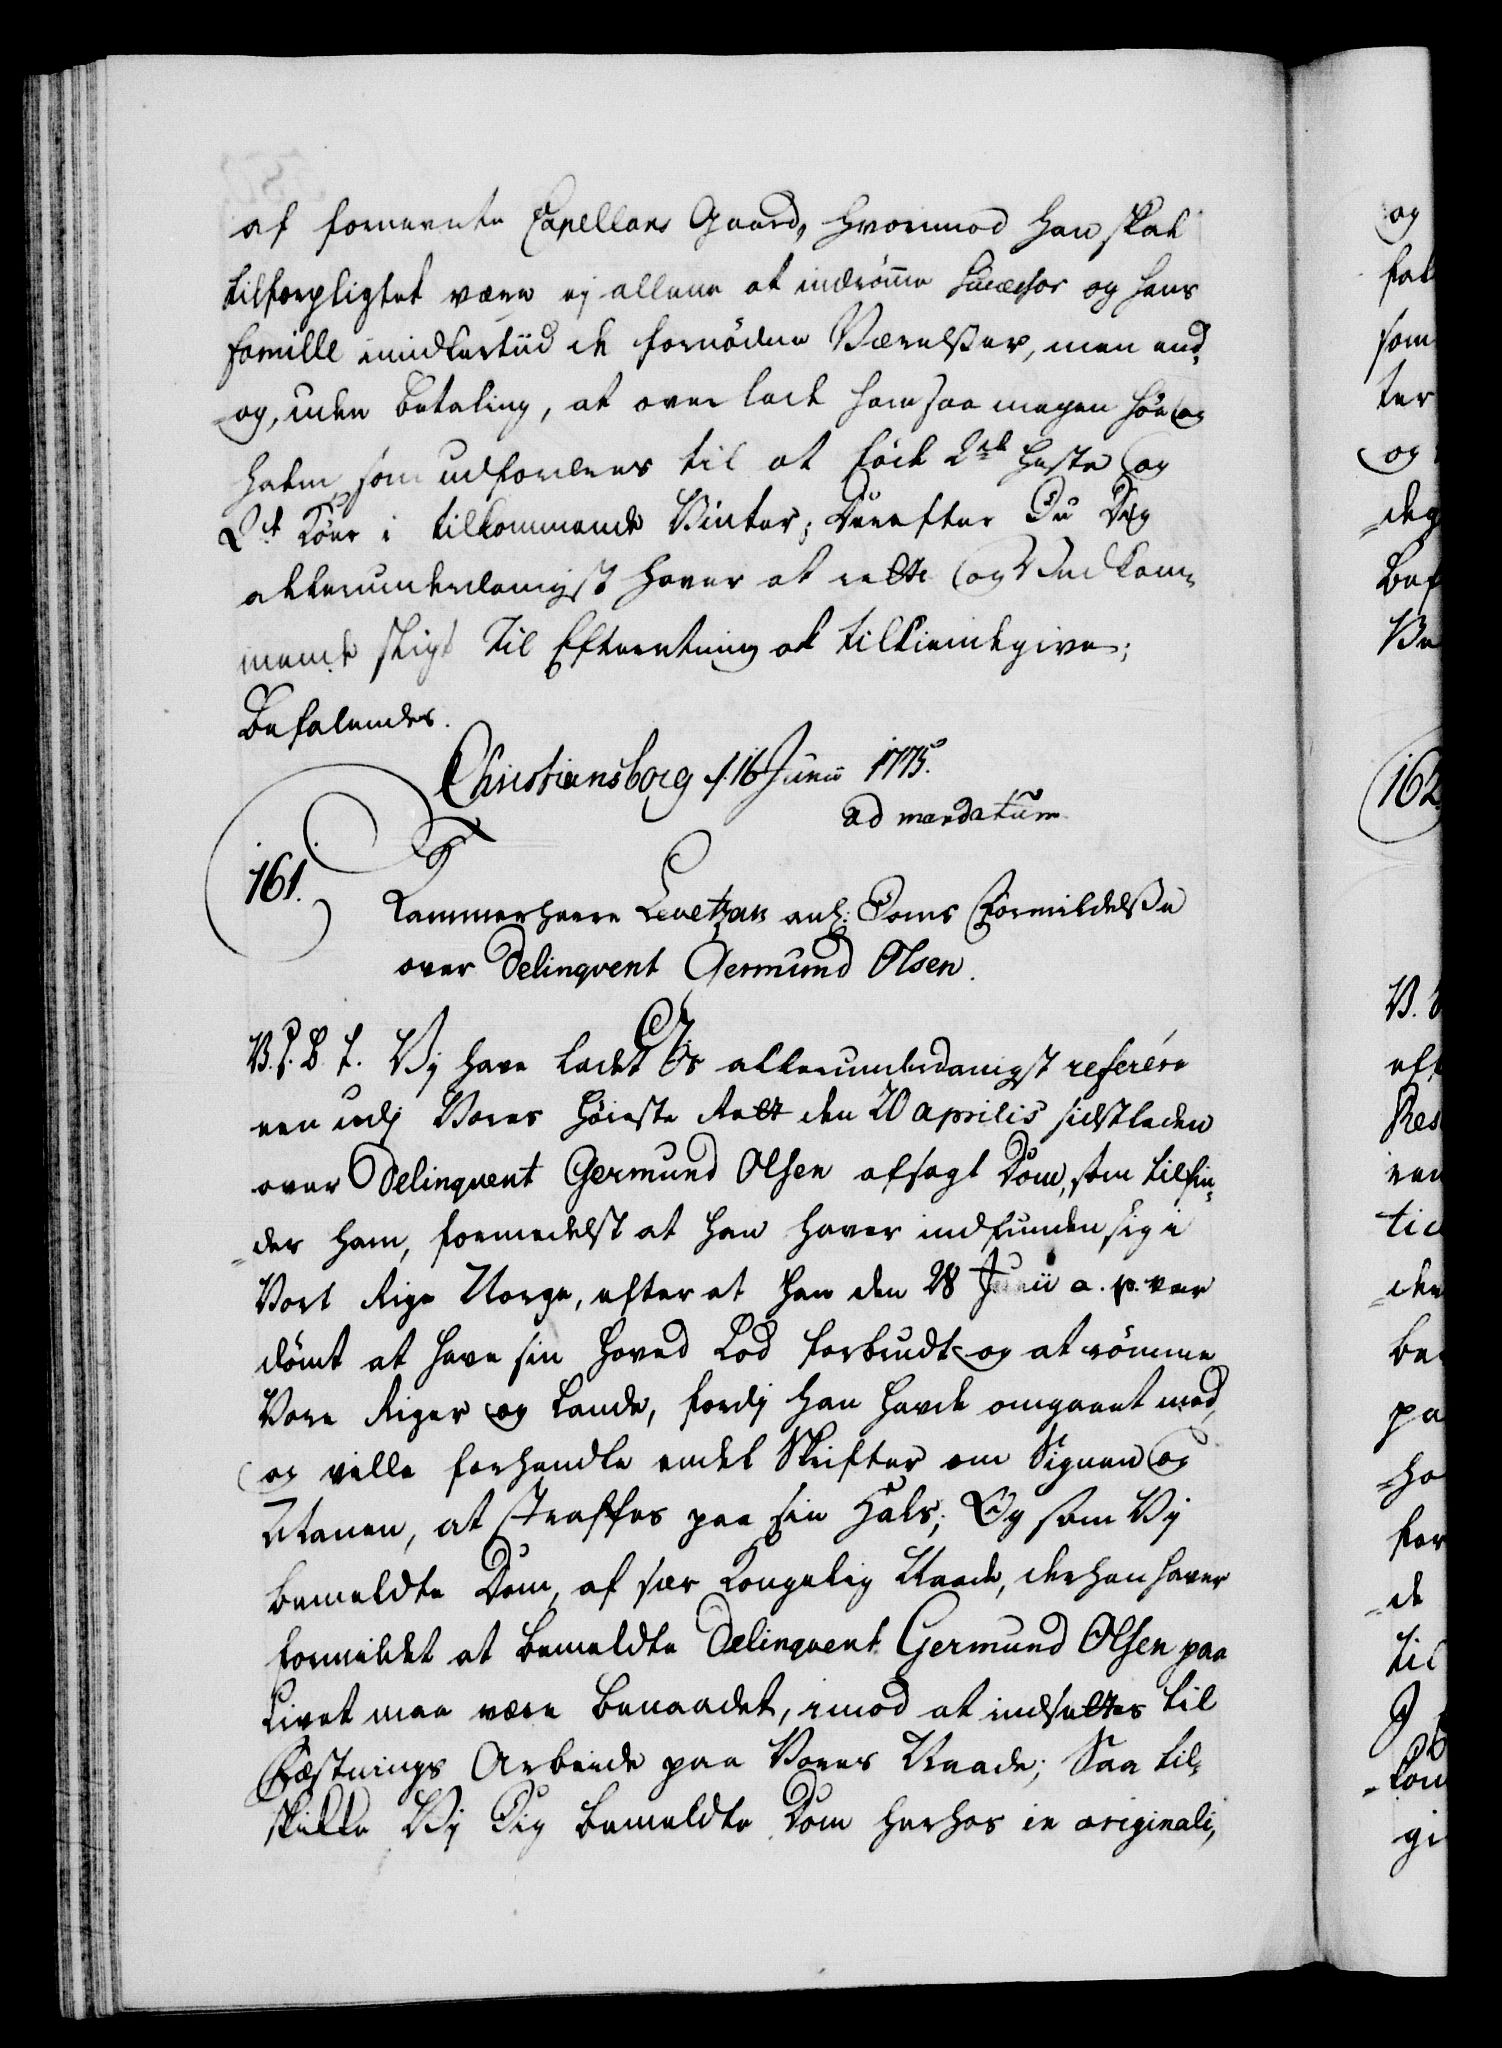 af fornevnte Capellans Gaard, hvorimod han skal
tilforpligtet være ej allene at indrømme Successor og hans
Familie imidlertiid de fornødne Værelser, men end-
og, uden Betaling, at overlade ham saa megen Høe og
Halm, som udfordres til at føde 2de Heste og
2de Køer i tilkommende Vinter; Derefter Du Dig
allerunderdanigst haver at rette og Vedkom-
mende sligt til Efterretning at tilkiendegive;
Befalendes.
Christiansborg d. 16 Junii 1775.
ad mandatum
161.
T
Kammerherre Levetzau anl: Doms Formildelse
over Delinqvent Germund Olsen.
V. S. B. T. Vj have ladet Os allerunderdanigst referére
een udj Vores Høieste Rett den 20 Aprilis sidstleden
over Delinqvent Germund Olsen afsagt Dom, som tilfin-
der ham, formedelst at han haver indfunden sig i
Vort Rige Norge, efter at han den 28 Junii a. p. var
dømt at have sin Hoved Lod forbrudt og at rømme
Vore Riger og Lande, fordj han havde omgaaet med,
og ville forhandle endel Skrifter om Signen og
Manen, at straffes paa sin Hals; Og som Vj
bemeldte Dom, af sær Kongelig Naade, derhen haver
formildet at bemeldte Delinqvent Germund Olsen paa
Livet maa være benaadet, imod at indsettes til
Fæstnings Arbeide paa Vores Naade; Saa til-
skikke Vj Dig bemeldte Dom herhos in originali,
og
fal
som
ter
og
deg
bef
Ve
162
V. S
eft
Res
ven
tid
den
be
pa
ho
for
de
til
J
kon
gi